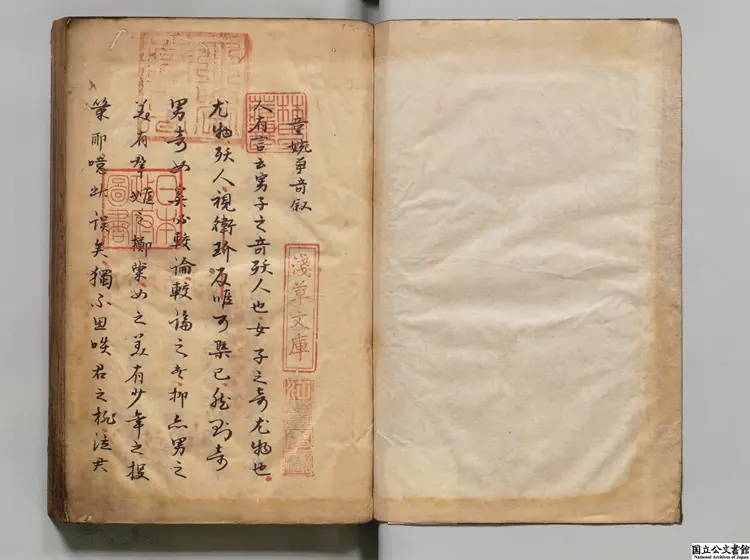 童婉爭奇叙
人有言云男子之奇殀人也女子之奇尤物也
尤物殀人視衛玠夏姬可槩已然則奇
男奇女奚必較論較論之者抑亦男之
美有群姬之擲菓女之美有少年之投
策耶噫此誤矣獨不思啖君之桃泣君
淺草文庫
日本
圖書
林
国立公文書館
National Archives of Japan